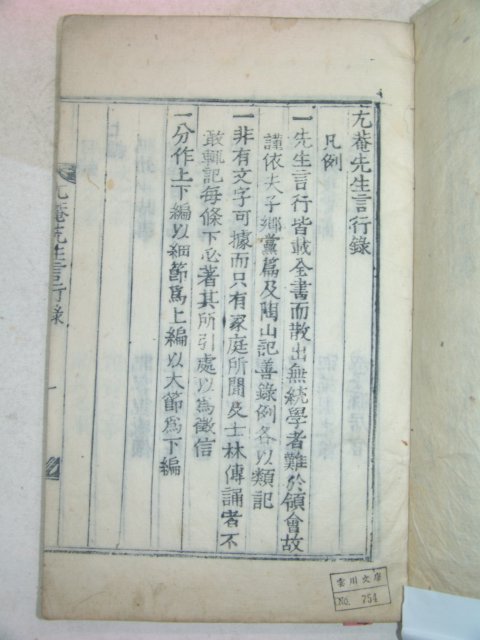 尤菴先生言行錄
凡例
一先生言行皆載全書而散出無統學者難於領會故
謹依夫子鄕黨篇及陶山記善錄例各以類記
一非有文字可據而只有家庭所聞及士林傳誦者不
敢輒記每條下必著其所引處以爲徵信
一分作上下編以細節爲上編以大節爲下編
尤菴先生言行錄
雲川文庫
No. 754